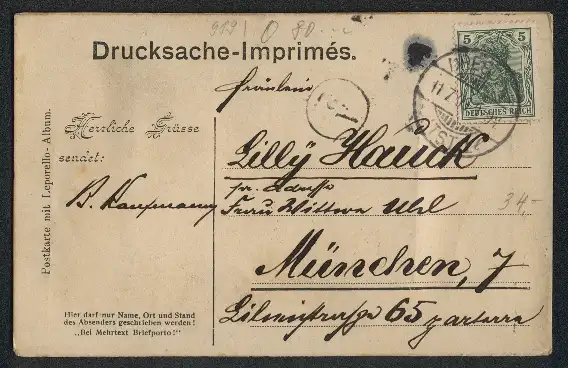 919 0 80.--
Drucksache-Imprimés.
5 5
DEUTSCHES REICH
Fräulein
Herzliche Grüsse
sendet:
Lilly Hauck
pr. Adresse
B. Kaufmann
Frau Wittwe Uhl
34,-
München, 7
Lilienstrasse 65 parterre
Postkarte mit Leporello-Album.
Hier darf nur Name, Ort und Stand
des Absenders geschrieben werden!
„Bei Mehrtext Briefporto!"